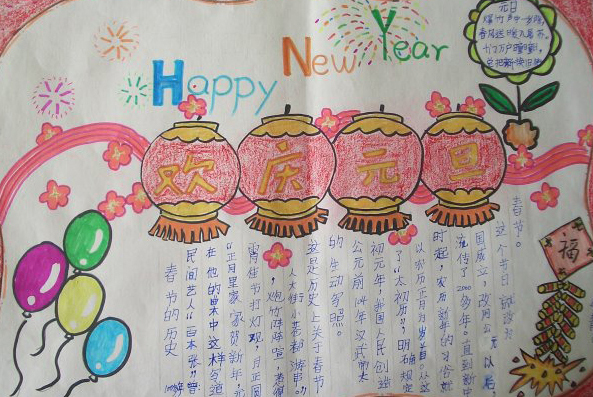 Happy New Year
元日
爆竹声中一岁除,
春风送暖入屠苏。
千门万户曈曈
总把新桃换旧
欢庆元旦
福
春节的历史
民间艺人"百本张"曾
在他的曲本中这样写道
"正月里家家贺新年,元
宵佳节把灯观,月正圆
,炮竹阵阵喧,惹得
人大街小巷都游串。"
这是历史上关于春节
的生动写照。
公元前104年汉武帝太
初元年,我国人民创造
了"太初历",明确规定
以农历正月为岁首。从这
时起,农历新年的习俗就
流传了2000多年。直到新中
国成立,改用公元以后,
这个节日就改为
春节。